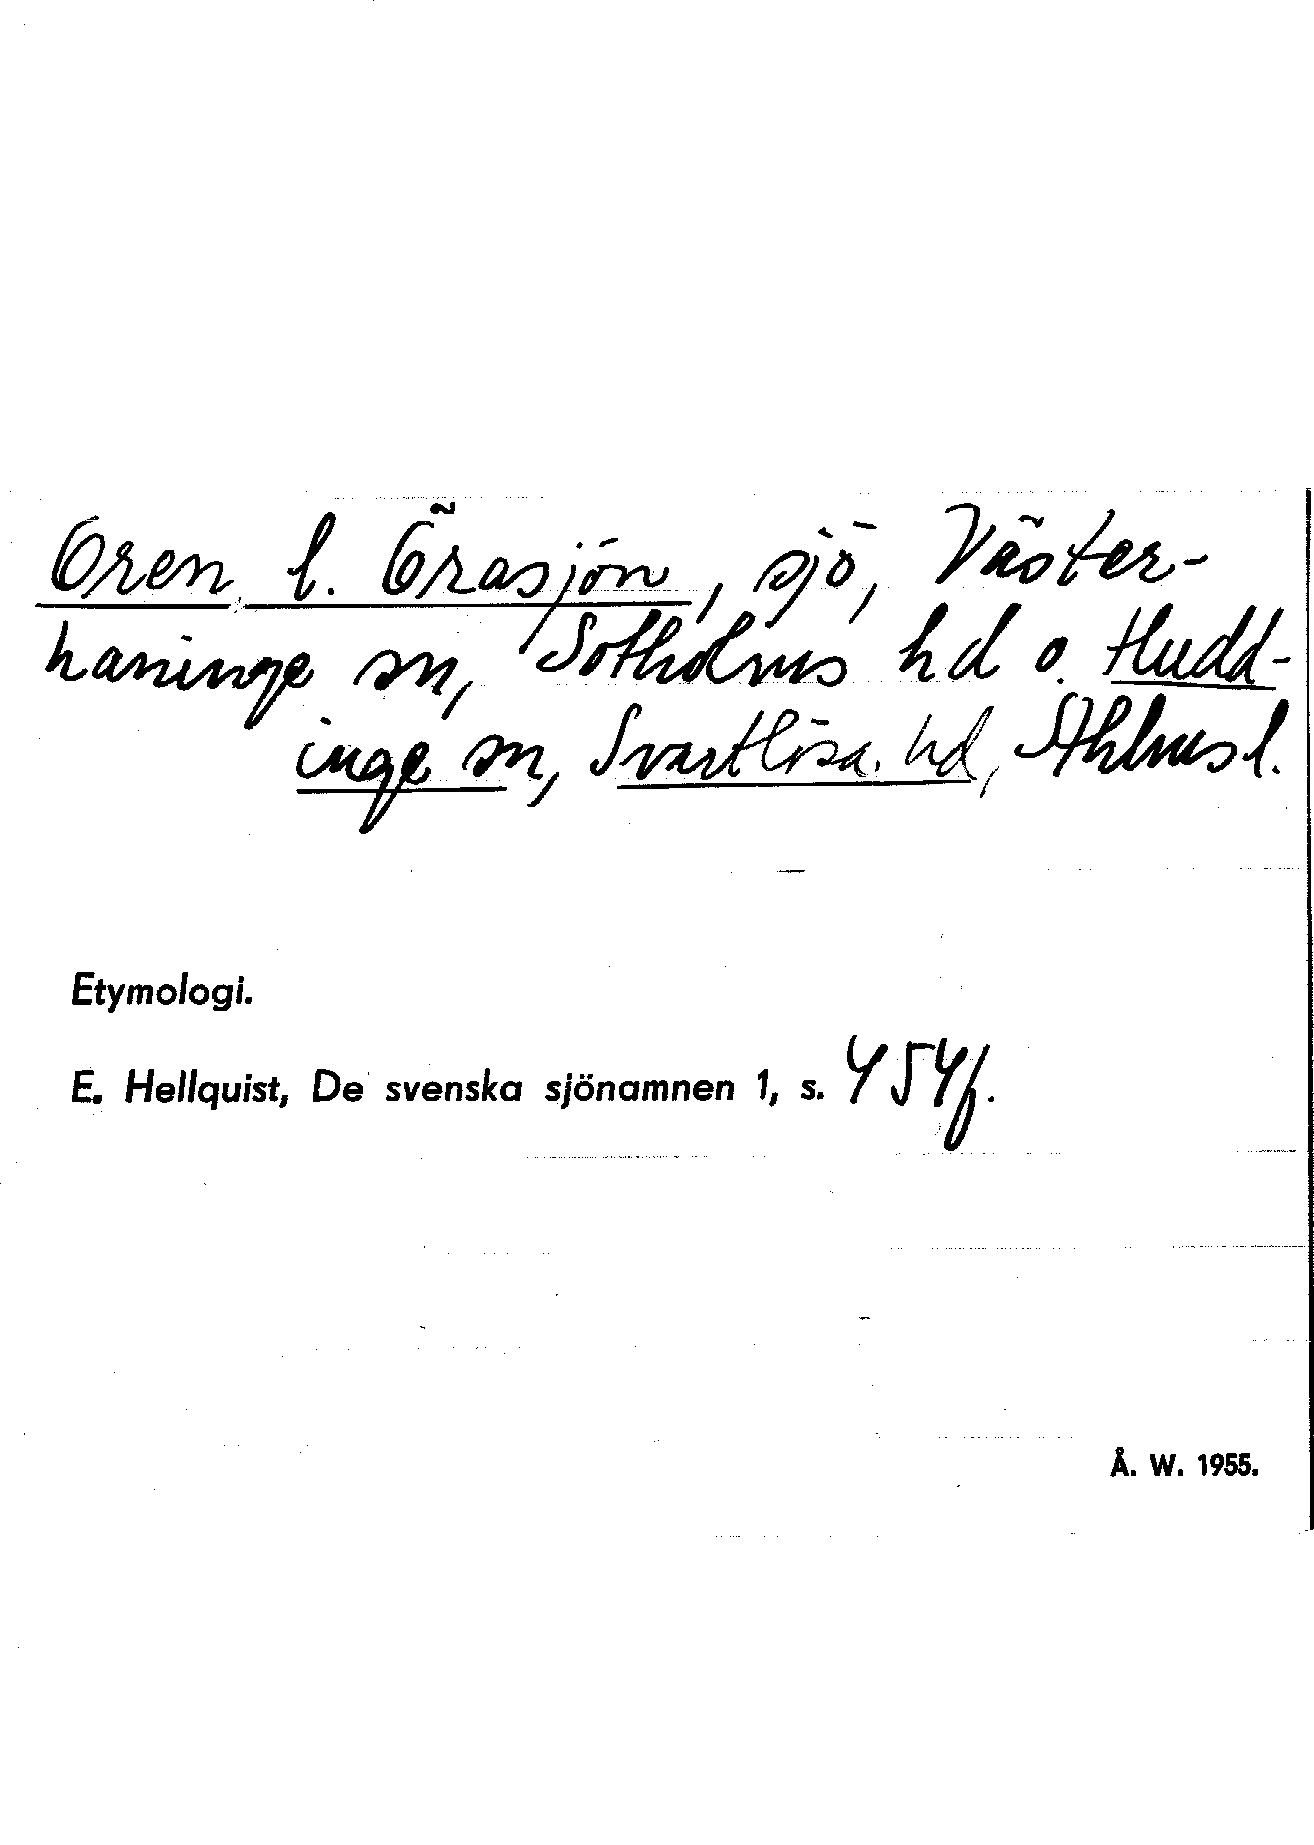 Oren l. Örasjön, sjö, Väster-
haninge sn, Sotholms hd o. Hudd-
inge sn, Svartlösa hd, Sthlms l.
Etymologi.
E. Hellquist, De svenska sjönamnen 1, s. 454f.
Å. W. 1955.